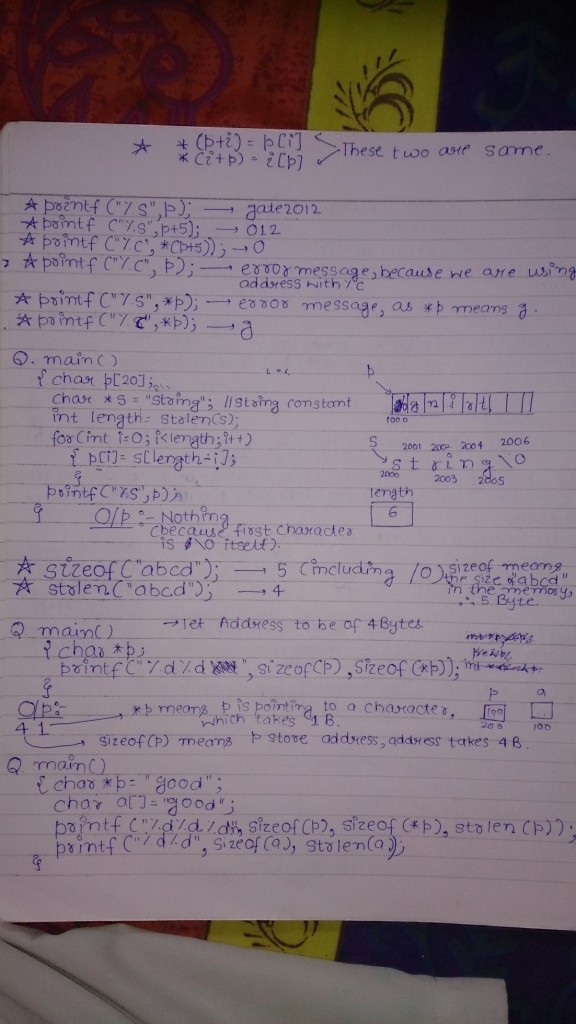 ☆ *(p+i) = p[i]
* (i+p) = i[p]
These two are same.
☆ printf ("%s",p); → gate2012
☆ printf ("%s",p+5); → 012
☆ printf ("%c", *(p+5)); → 0
☆ printf ("%c", p); → error message, because we are using
address with %c
☆ printf ("%s", *p); → error message, as *p means g.
☆ printf ("%c", *p); → g
Q. main()
{ char p[20];
char *s = "string"; //string constant
int length = strlen(s);
for(int i=0; i<length; i++)
{ p[i] = s[length-i];
}
printf("%s",p);
}
p
g n i r t
1000
s 2001 2002 2004 2006
s t r i n g \0
2000 2003 2005
length
6
O/p :- Nothing
(because first character
is \0 itself).
☆ sizeof("abcd"); → 5 (including /0)
☆ strlen("abcd"); → 4
sizeof means
the size of "abcd"
in the memory,
∴ 5 Byte
Q main() → let Address to be of 4 Bytes
{ char *p;
printf("%d %d", sizeof(p), sizeof(*p));
}
p a
100
200 100
O/p:-
4 1
*p means p is pointing to a character,
which takes 1 B.
sizeof(p) means p store address, address takes 4 B.
Q. main()
{ char *p = "good";
char a[] = "good";
printf ("%d %d %d", sizeof(p), sizeof(*p), strlen(p));
printf ("%d %d", sizeof(a), strlen(a));
}